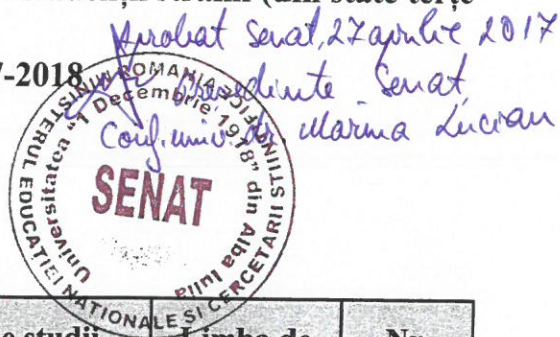 (din state terțe
Aprobat Senat, 27 aprilie 2017
7-2018
Președinte Senat
Conf. univ. dr. Marina Lucian
ROMANIA
MINISTERUL EDUCAȚIEI NAȚIONALE ȘI CERCETĂRII ȘTIINȚIFICE
Universitatea "1 Decembrie 1918" din Alba Iulia
SENAT
e studii
Limba de
Nr